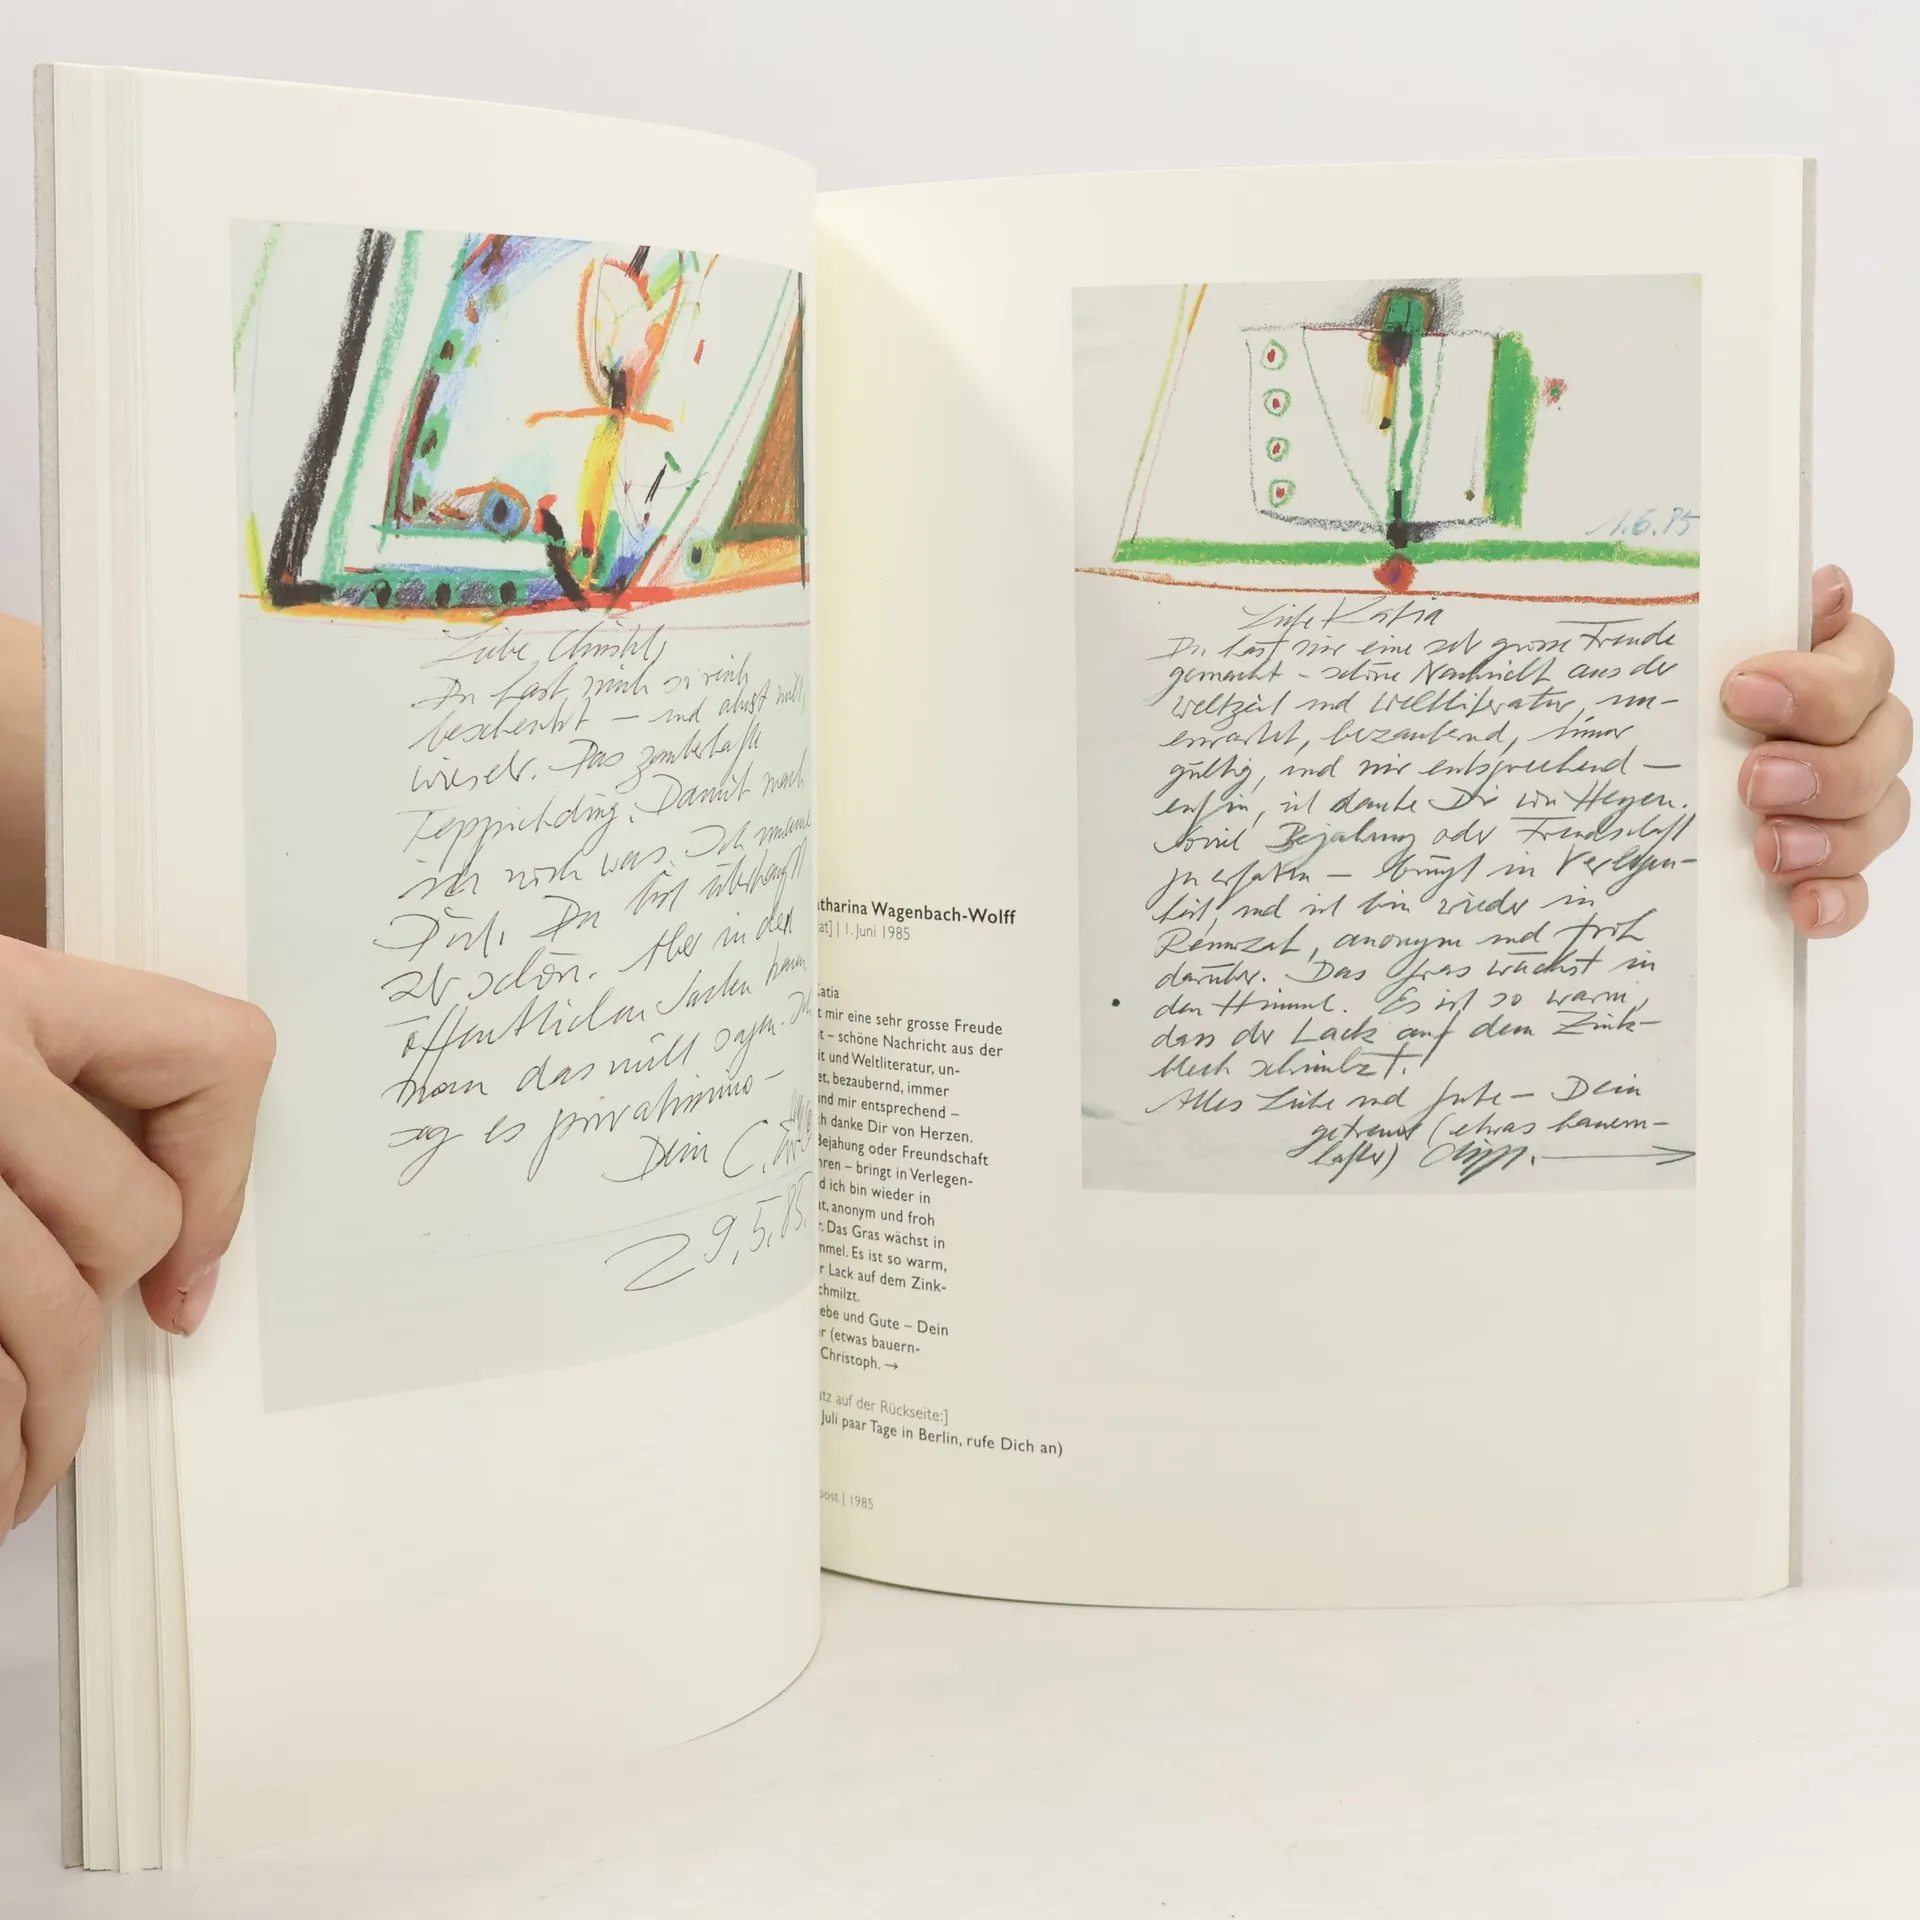 Liebe Christl,
Du hast mich so reich
beschenkt – und ahnst nicht,
wie sehr. Das zauberhafte
Teppichding. Damit mach
ich noch was. Ich umarme
Dich. Du bist überhaupt
sehr schön. Aber in den
öffentlichen Sachen kann
man das nicht sagen. Ich
sag es privatissimo –
Dein C.
29.5.85.
atharina Wagenbach-Wolff
at] | 1. Juni 1985
Katia
t mir eine sehr grosse Freude
t – schöne Nachricht aus der
it und Weltliteratur, un-
et, bezaubernd, immer
und mir entsprechend –
h danke Dir von Herzen.
Bejahung oder Freundschaft
hren – bringt in Verlegen-
d ich bin wieder in
at, anonym und froh
r. Das Gras wächst in
mmel. Es ist so warm,
r Lack auf dem Zink-
chmilzt.
ebe und Gute – Dein
r (etwas bauern-
Christoph. →
tz auf der Rückseite:]
Juli paar Tage in Berlin, rufe Dich an)
post | 1985
1.6.85
Liebe Katia
Du hast mir eine sehr grosse Freude
gemacht – schöne Nachricht aus der
Weltzeit und Weltliteratur, un-
erwartet, bezaubernd, immer
gültig, und mir entsprechend –
enfin, ich danke Dir von Herzen.
Soviel Bejahung oder Freundschaft
zu erfahren – bringt in Verlegen-
heit, und ich bin wieder in
anonym und froh
darüber. Das Gras wächst in
den Himmel. Es ist so warm,
dass der Lack auf dem Zink-
blech schmilzt.
Alles Liebe und Gute – Dein
getreuer (etwas bauern-
hafter) Christoph. →